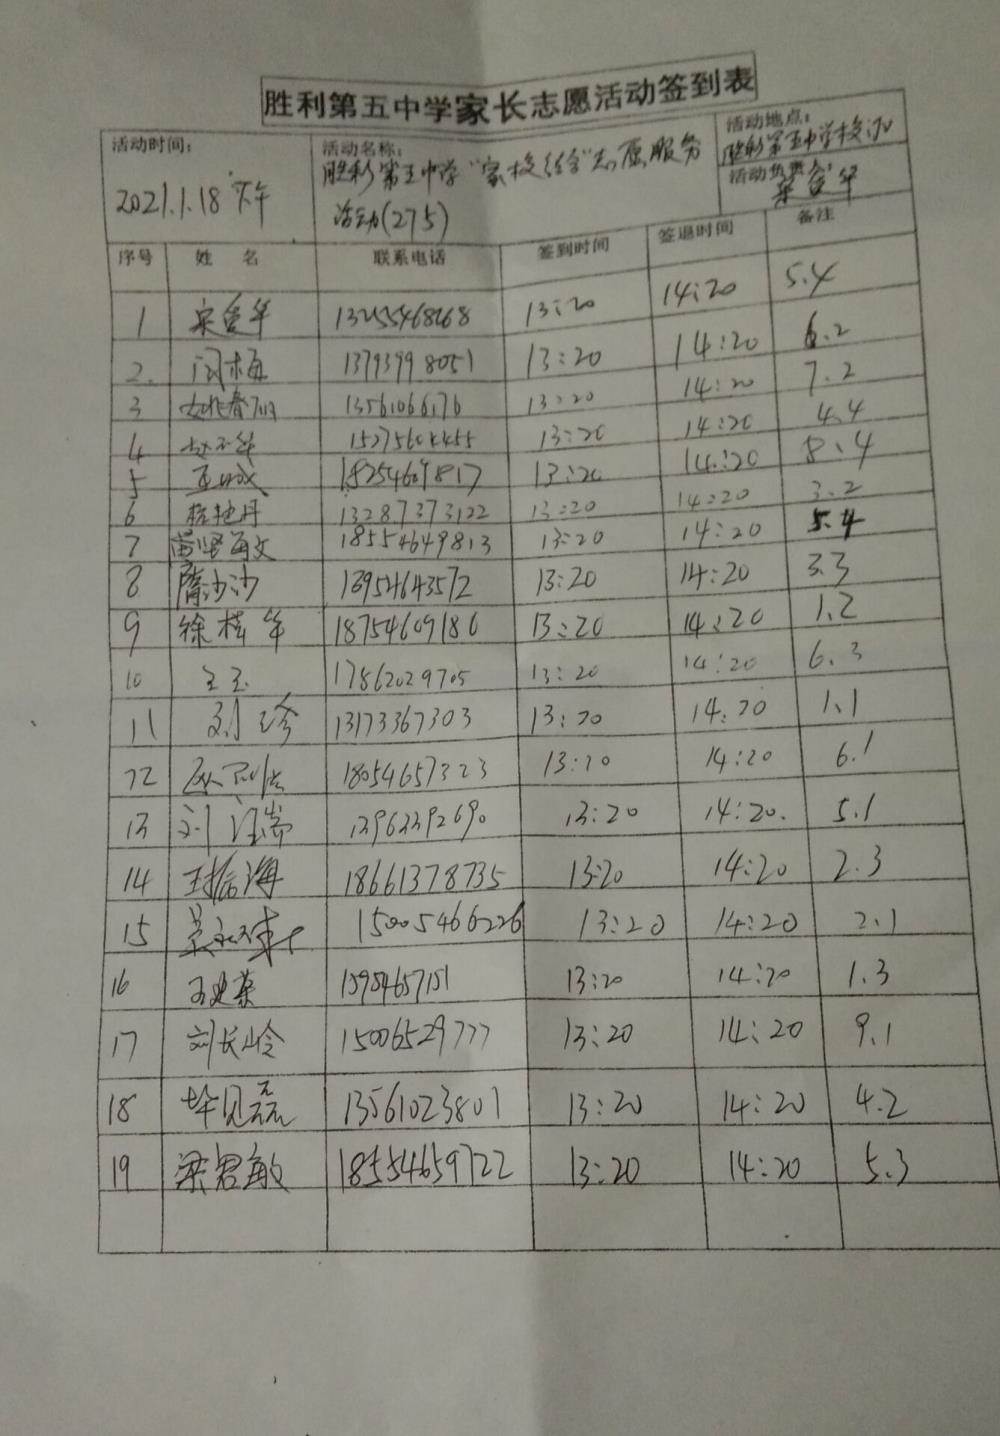 胜利第五中学家长志愿活动签到表
活动时间: 2021.1.18 下午
活动名称: 胜利第五中学“家校 志愿服务
活动(275)
活动地点: 胜利第五中学校
活动负责人:
序号 姓 名 联系电话 签到时间 签退时间 备注
1 13:20 14:20 5.4
2. 闫梅 13793998051 13:20 14:20 6.2
3 13561066176 13:20 14:20 7.2
4 13:20 14:20 4.4
5 18254609817 13:20 14:20 8.4
6 13287373122 13:20 14:20 3.2
7 18554649813 13:20 14:20 5.4
8 隋沙沙 13954643572 13:20 14:20 3.3
9 徐桂华 18754609186 13:20 14:20 1.2
10 17862029705 13:20 14:20 6.3
11 刘珍 13173367303 13:20 14:20 1.1
12 18054657323 13:20 14:20 6.1
13 刘 13963392690 13:20 14:20. 5.1
14 王振海 18661378735 13:20 14:20 2.3
15 15005466226 13:20 14:20 2.1
16 15954657151 13:20 14:20 1.3
17 刘长岭 15006529777 13:20 14:20 9.1
18 毕见磊 13561023801 13:20 14:20 4.2
19 梁君敏 18554659722 13:20 14:20 5.3